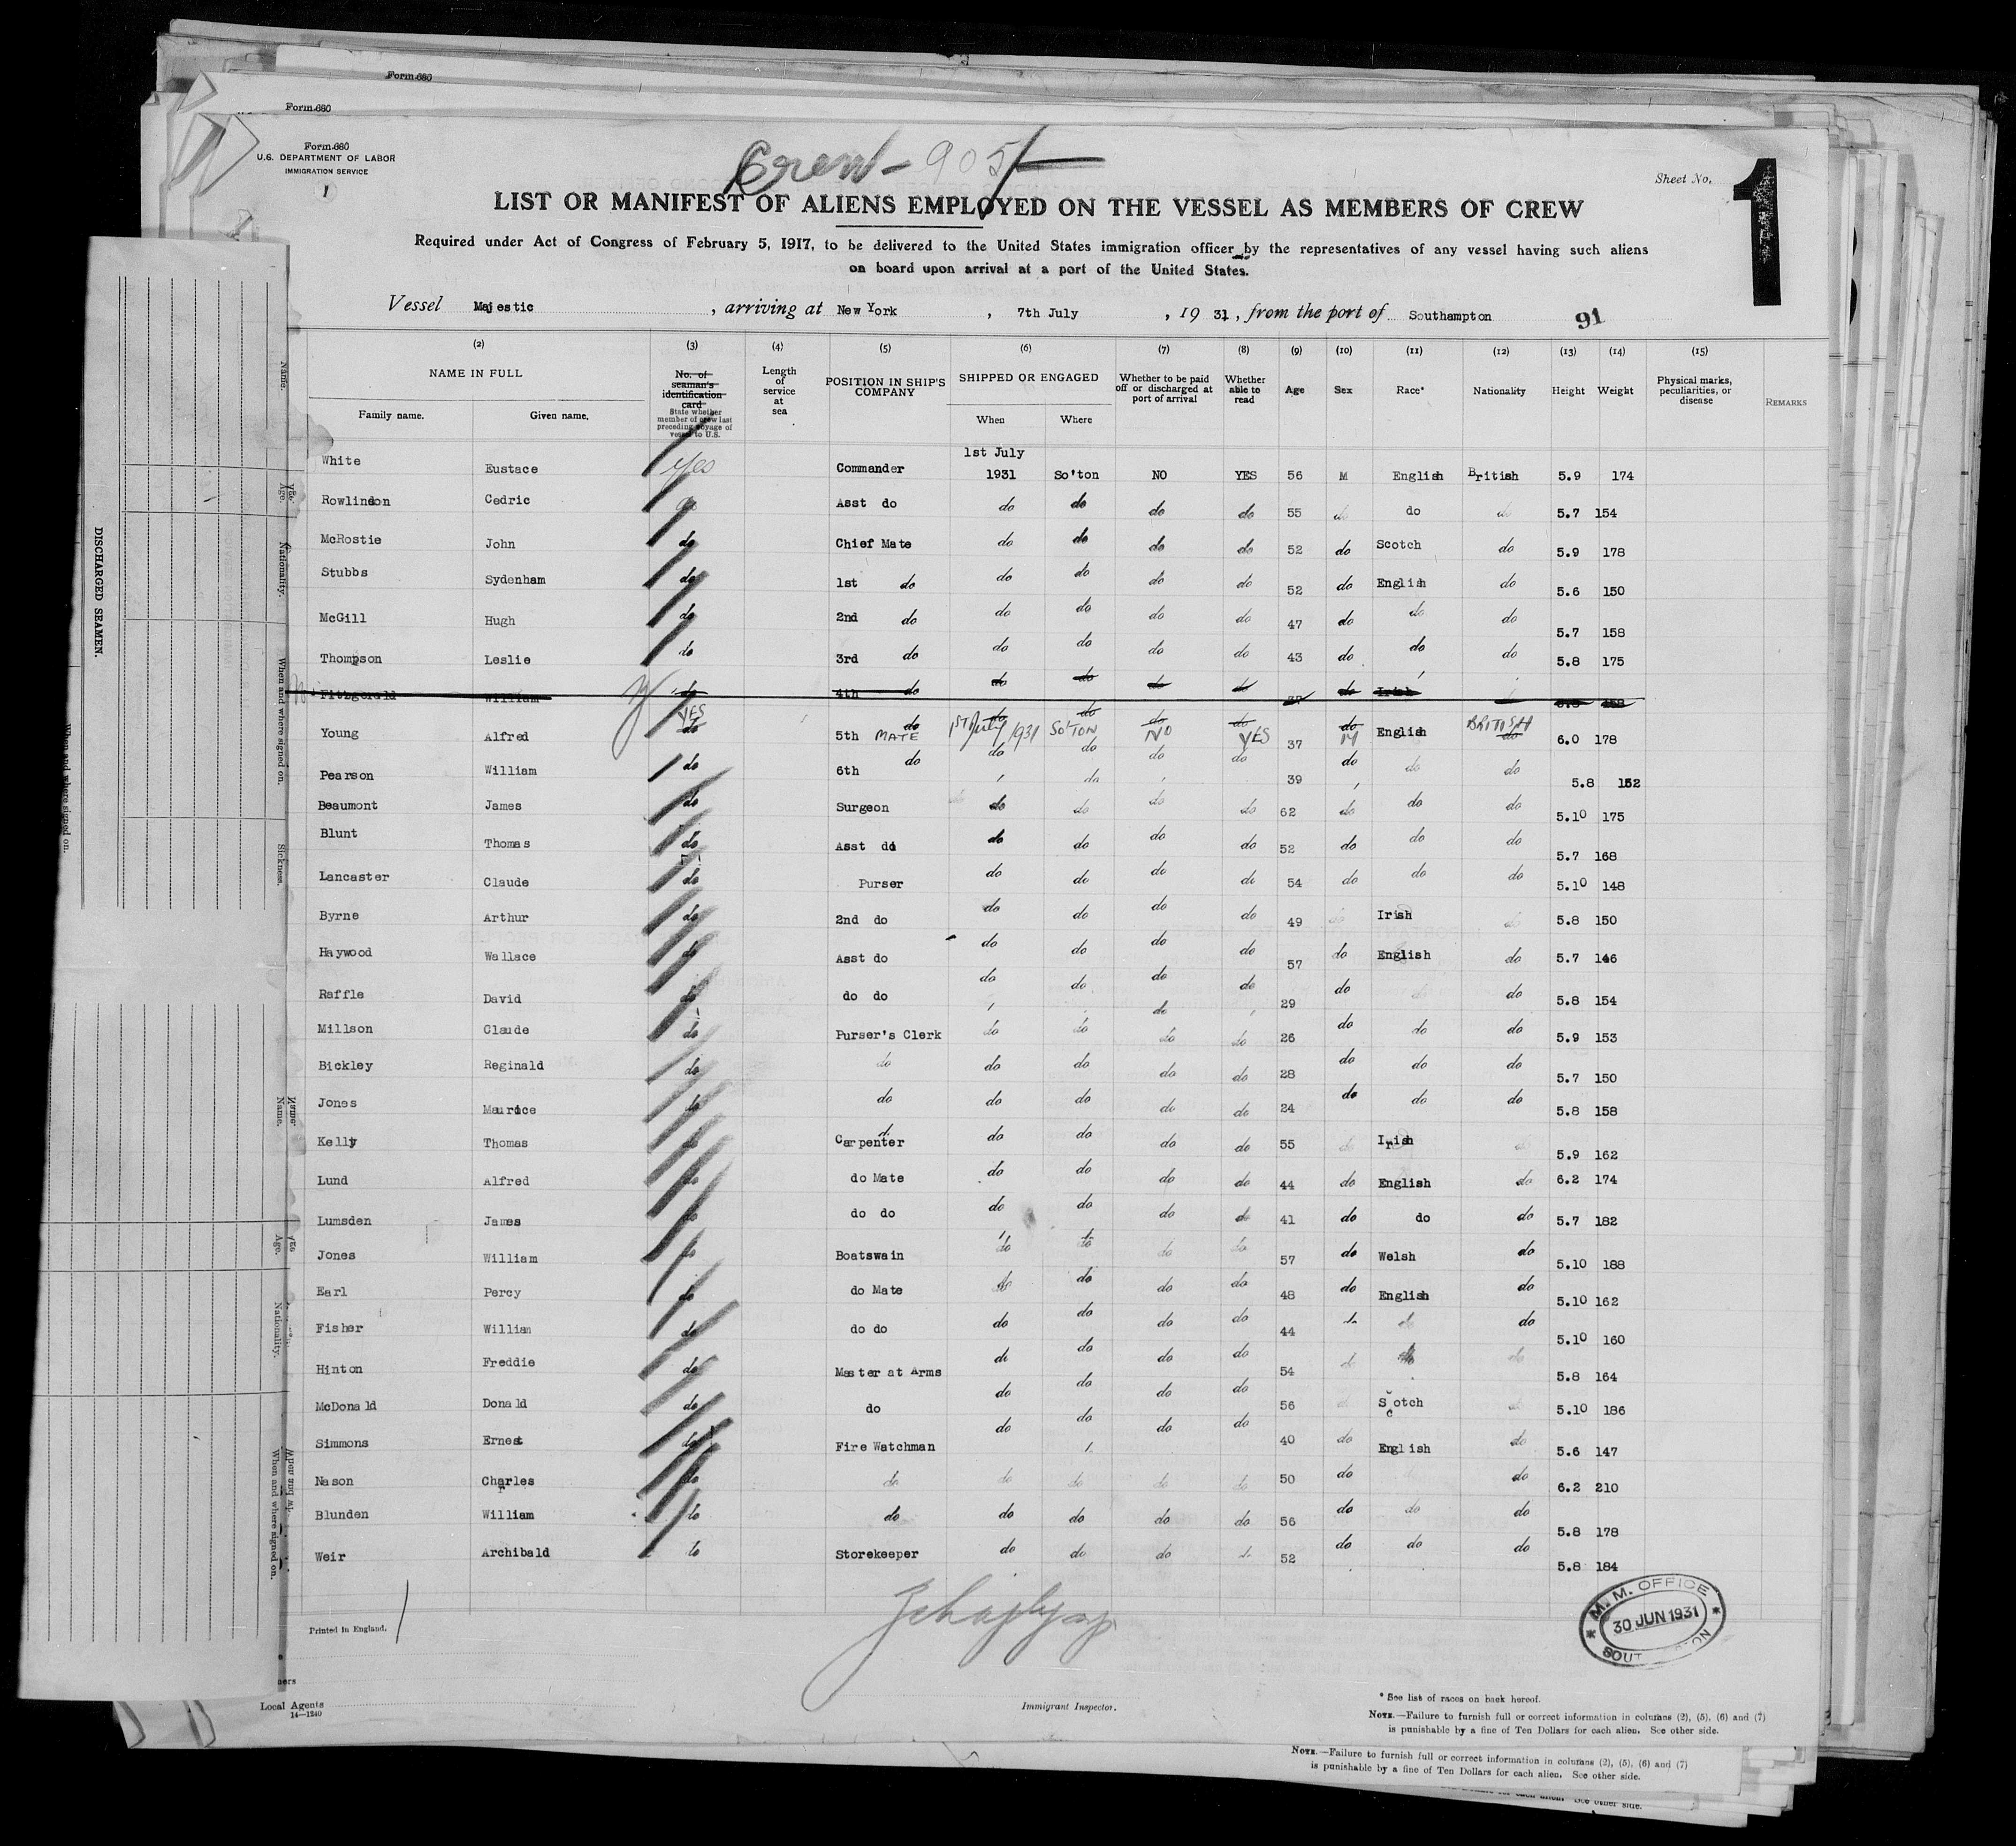 Form 680
Form 680
Form 680
U.S. DEPARTMENT OF LABOR
IMMIGRATION SERVICE
1
Crew - 905
Sheet No. 1
LIST OR MANIFEST OF ALIENS EMPLOYED ON THE VESSEL AS MEMBERS OF CREW
Required under Act of Congress of February 5, 1917, to be delivered to the United States immigration officer by the representatives of any vessel having such aliens
on board upon arrival at a port of the United States.
Vessel Majestic , arriving at New York , 7th July , 1931 , from the port of Southampton 91
(2) (3) (4) (5) (6) (7) (8) (9) (10) (11) (12) (13) (14) (15)
NAME IN FULL Family name. Given name. No. of seaman's identification card State whether member of crew last preceding voyage of vessel to U.S. Length of service at sea POSITION IN SHIP'S COMPANY SHIPPED OR ENGAGED When Where Whether to be paid off or discharged at port of arrival Whether able to read Age Sex Race* Nationality Height Weight Physical marks, peculiarities, or disease REMARKS
White Eustace Yes Commander 1st July 1931 So'ton NO YES 56 M English British 5.9 174
Rowlindon Cedric do Asst do do do do do 55 do do do 5.7 154
McRostie John do Chief Mate do do do do 52 do Scotch do 5.9 178
Stubbs Sydenham do 1st do do do do do 52 do English do 5.6 150
McGill Hugh do 2nd do do do do do 47 do do do 5.7 158
Thompson Leslie do 3rd do do do do do 43 do do do 5.8 175
Fitzgerald William do 4th do do do do do 37 do Irish
Young Alfred YES do 5th do MATE 1ST July 1931 So'TON NO YES 37 M English BRITISH 6.0 178
Pearson William do 6th do do do do do 39 do do do 5.8 152
Beaumont James do Surgeon do do do do 62 do do do 5.10 175
Blunt Thomas do Asst do do do do do 52 do do do 5.7 168
Lancaster Claude do Purser do do do do 54 do do do 5.10 148
Byrne Arthur do 2nd do do do do do 49 do Irish do 5.8 150
Haywood Wallace do Asst do do do do do 57 do English do 5.7 146
Raffle David do do do do do do do 29 do do do 5.8 154
Millson Claude do Purser's Clerk do do do do 26 do do do 5.9 153
Bickley Reginald do do do do do do 28 do do do 5.7 150
Jones Maurice do do do do do do 24 do do do 5.8 158
Kelly Thomas do Carpenter do do do do 55 do Irish do 5.9 162
Lund Alfred do do Mate do do do do 44 do English do 6.2 174
Lumsden James do do do do do do do 41 do do do 5.7 182
Jones William do Boatswain do do do do 57 do Welsh do 5.10 188
Earl Percy do do Mate do do do do 48 do English do 5.10 162
Fisher William do do do do do do do 44 do do do 5.10 160
Hinton Freddie do Master at Arms do do do do 54 do do do 5.8 164
McDonald Donald do do do do do do 56 do Scotch do 5.10 186
Simmons Ernest do Fire Watchman do do do do 40 do English do 5.6 147
Nason Charles do do do do do do 50 do do 6.2 210
Blunden William do do do do do do 56 do do do 5.8 178
Weir Archibald do Storekeeper do do do do 52 do do do 5.8 184
M. M. OFFICE
30 JUN 1931
Printed in England.
Local Agents
14—1240
Immigrant Inspector.
* See list of races on back hereof.
NOTE.—Failure to furnish full or correct information in columns (2), (5), (6) and (7)
is punishable by a fine of Ten Dollars for each alien. See other side.
NOTE.—Failure to furnish full or correct information in columns (2), (5), (6) and (7)
is punishable by a fine of Ten Dollars for each alien. See other side.
See other side.
DISCHARGED SEAMEN.
When and where signed on.
Name.
Age.
Nationality.
When and where signed on.
Sickness.
Name.
Age.
Nationality.
When and where signed on.